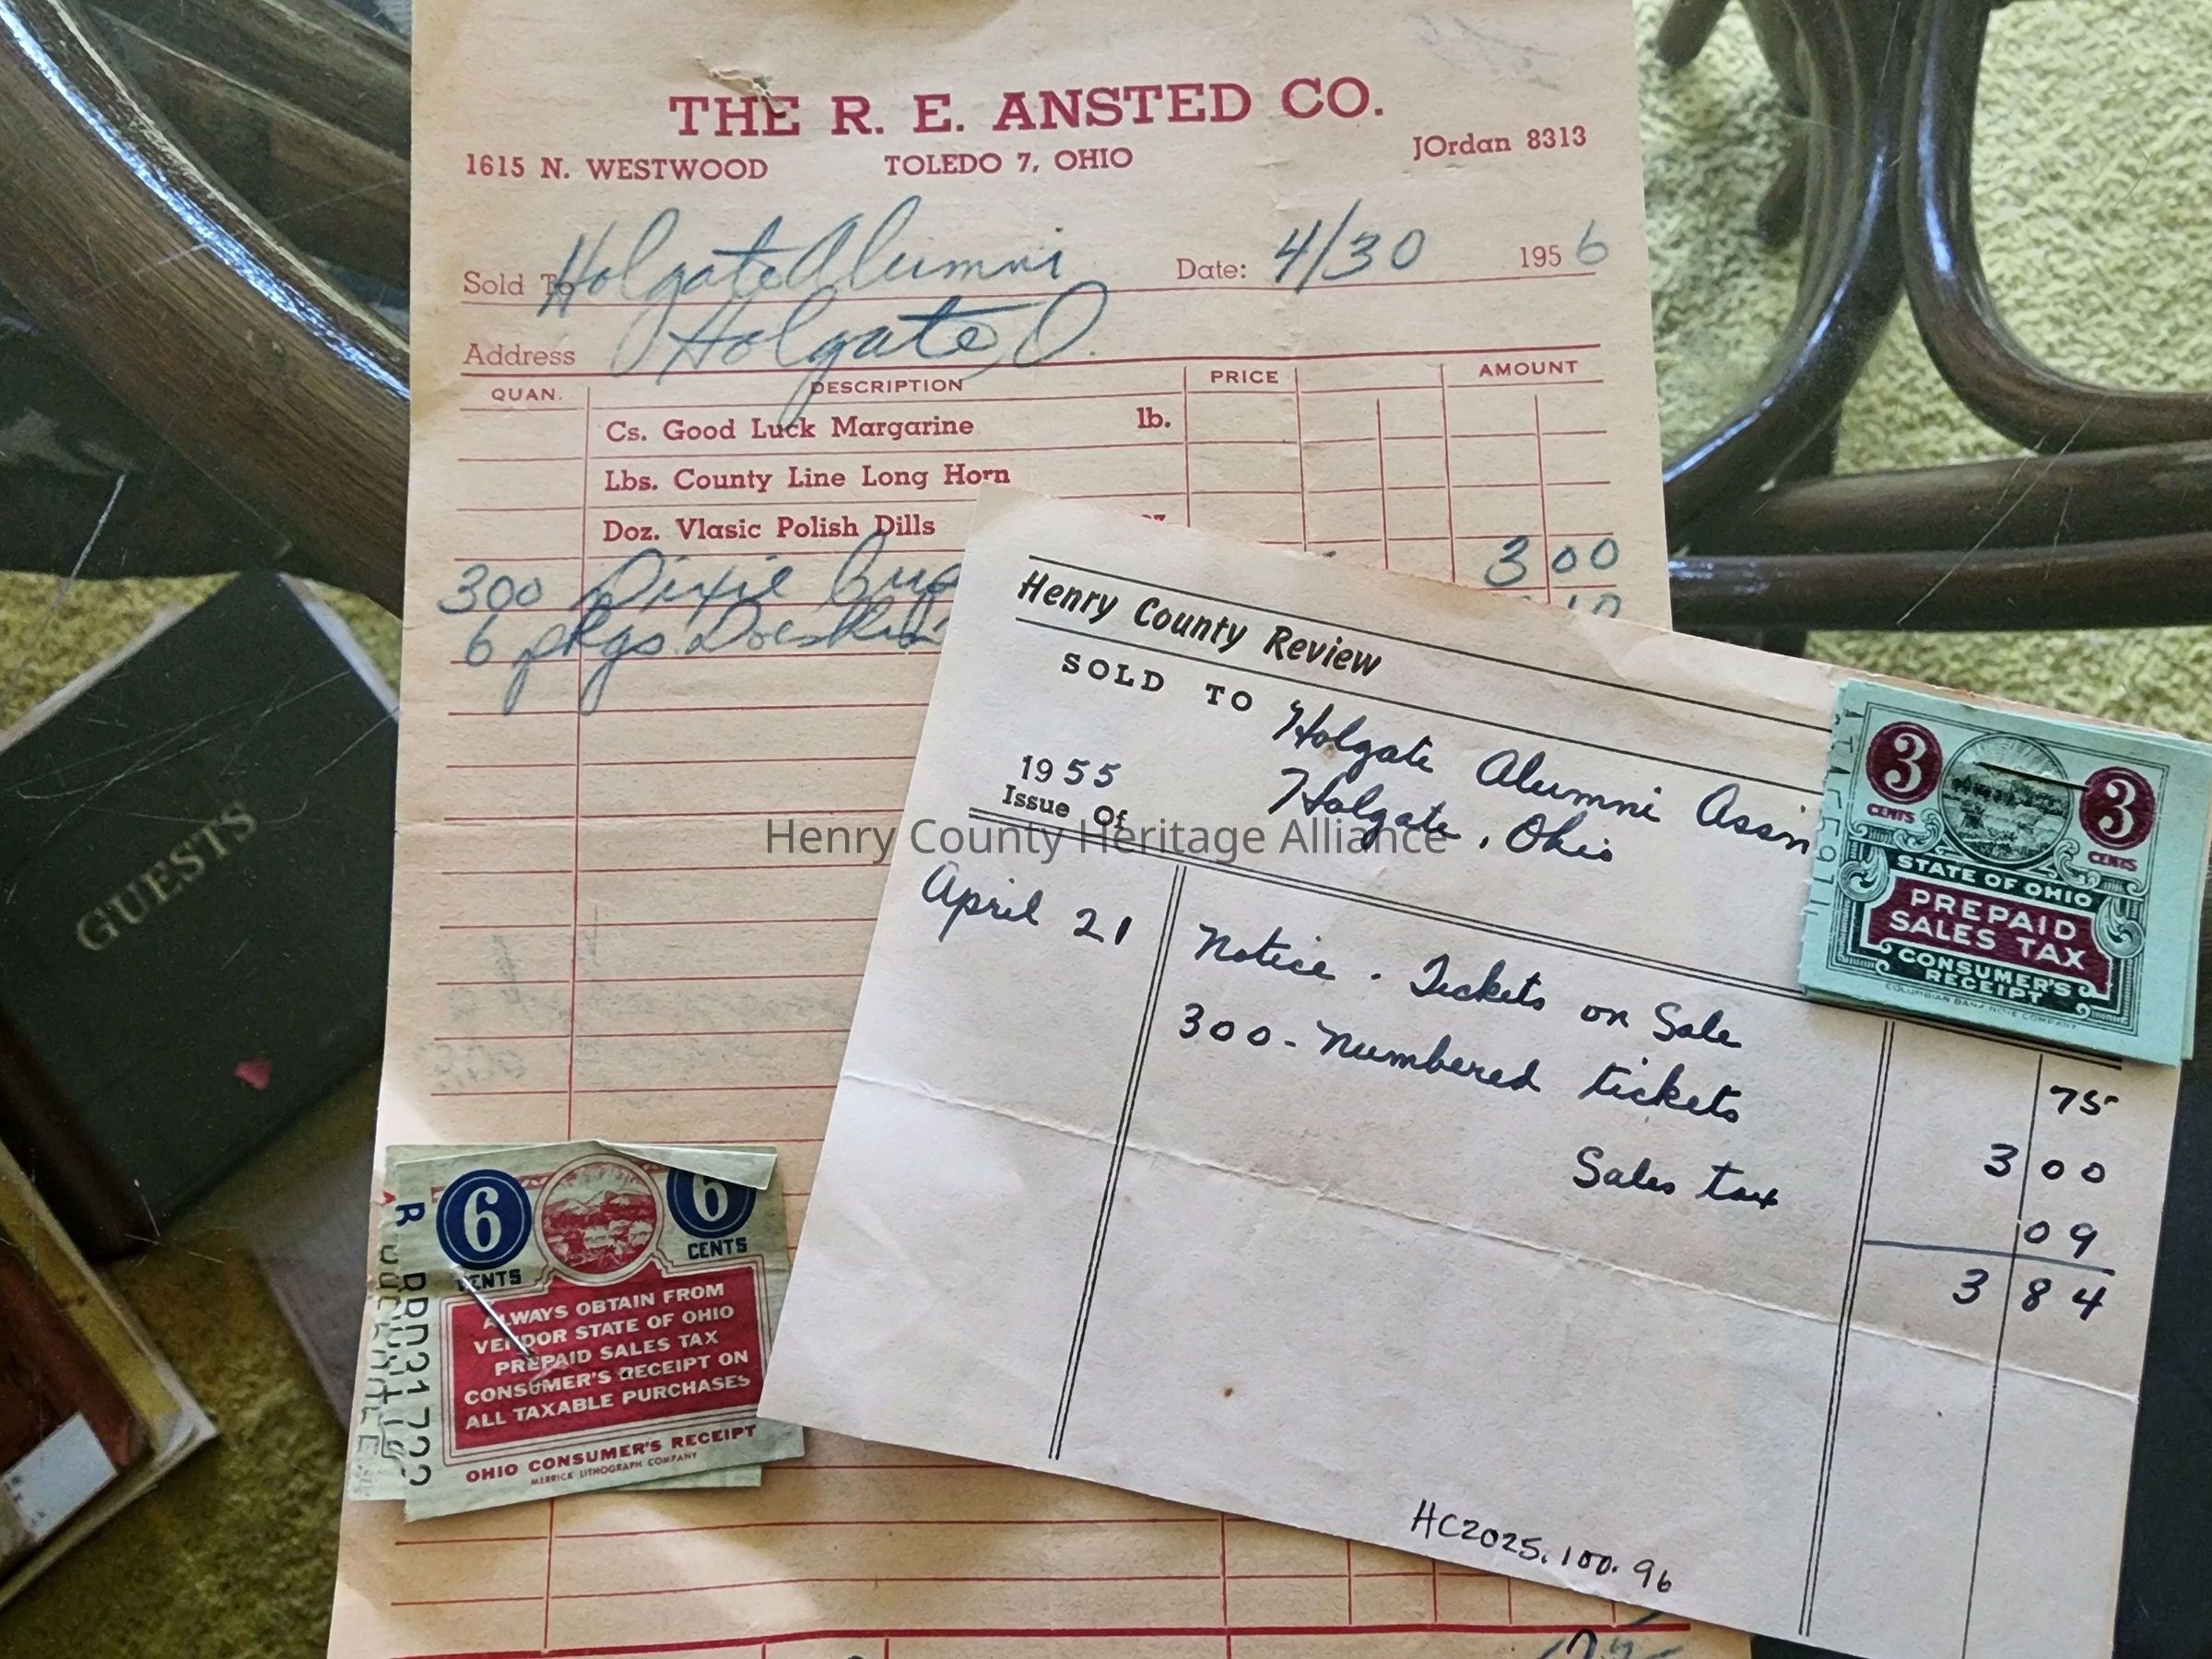 THE R. E. ANSTED CO.
1615 N. WESTWOOD TOLEDO 7, OHIO JOrdan 8313
Sold To Holgate Alumni Date: 4/30 1956
Address Holgate, O.
QUAN. DESCRIPTION PRICE AMOUNT
Cs. Good Luck Margarine lb.
Lbs. County Line Long Horn
Doz. Vlasic Polish Dills
300 Dixie 3 00
6 pkgs
Henry County Review
SOLD TO Holgate Alumni Assn
Holgate, Ohio
1955
Issue Of
April 21 Notice - Tickets on Sale 75
300 - Numbered tickets 3 00
Sales tax 09
3 84
HC2025.100.96
3 3
CENTS CENTS
STATE OF OHIO
PREPAID
SALES TAX
CONSUMER'S
RECEIPT
COLUMBIAN BANK NOTE COMPANY
6 6
CENTS CENTS
ALWAYS OBTAIN FROM
VENDOR STATE OF OHIO
PREPAID SALES TAX
CONSUMER'S RECEIPT ON
ALL TAXABLE PURCHASES
OHIO CONSUMER'S RECEIPT
MERRICK LITHOGRAPH COMPANY
GUESTS
Henry County Heritage Alliance